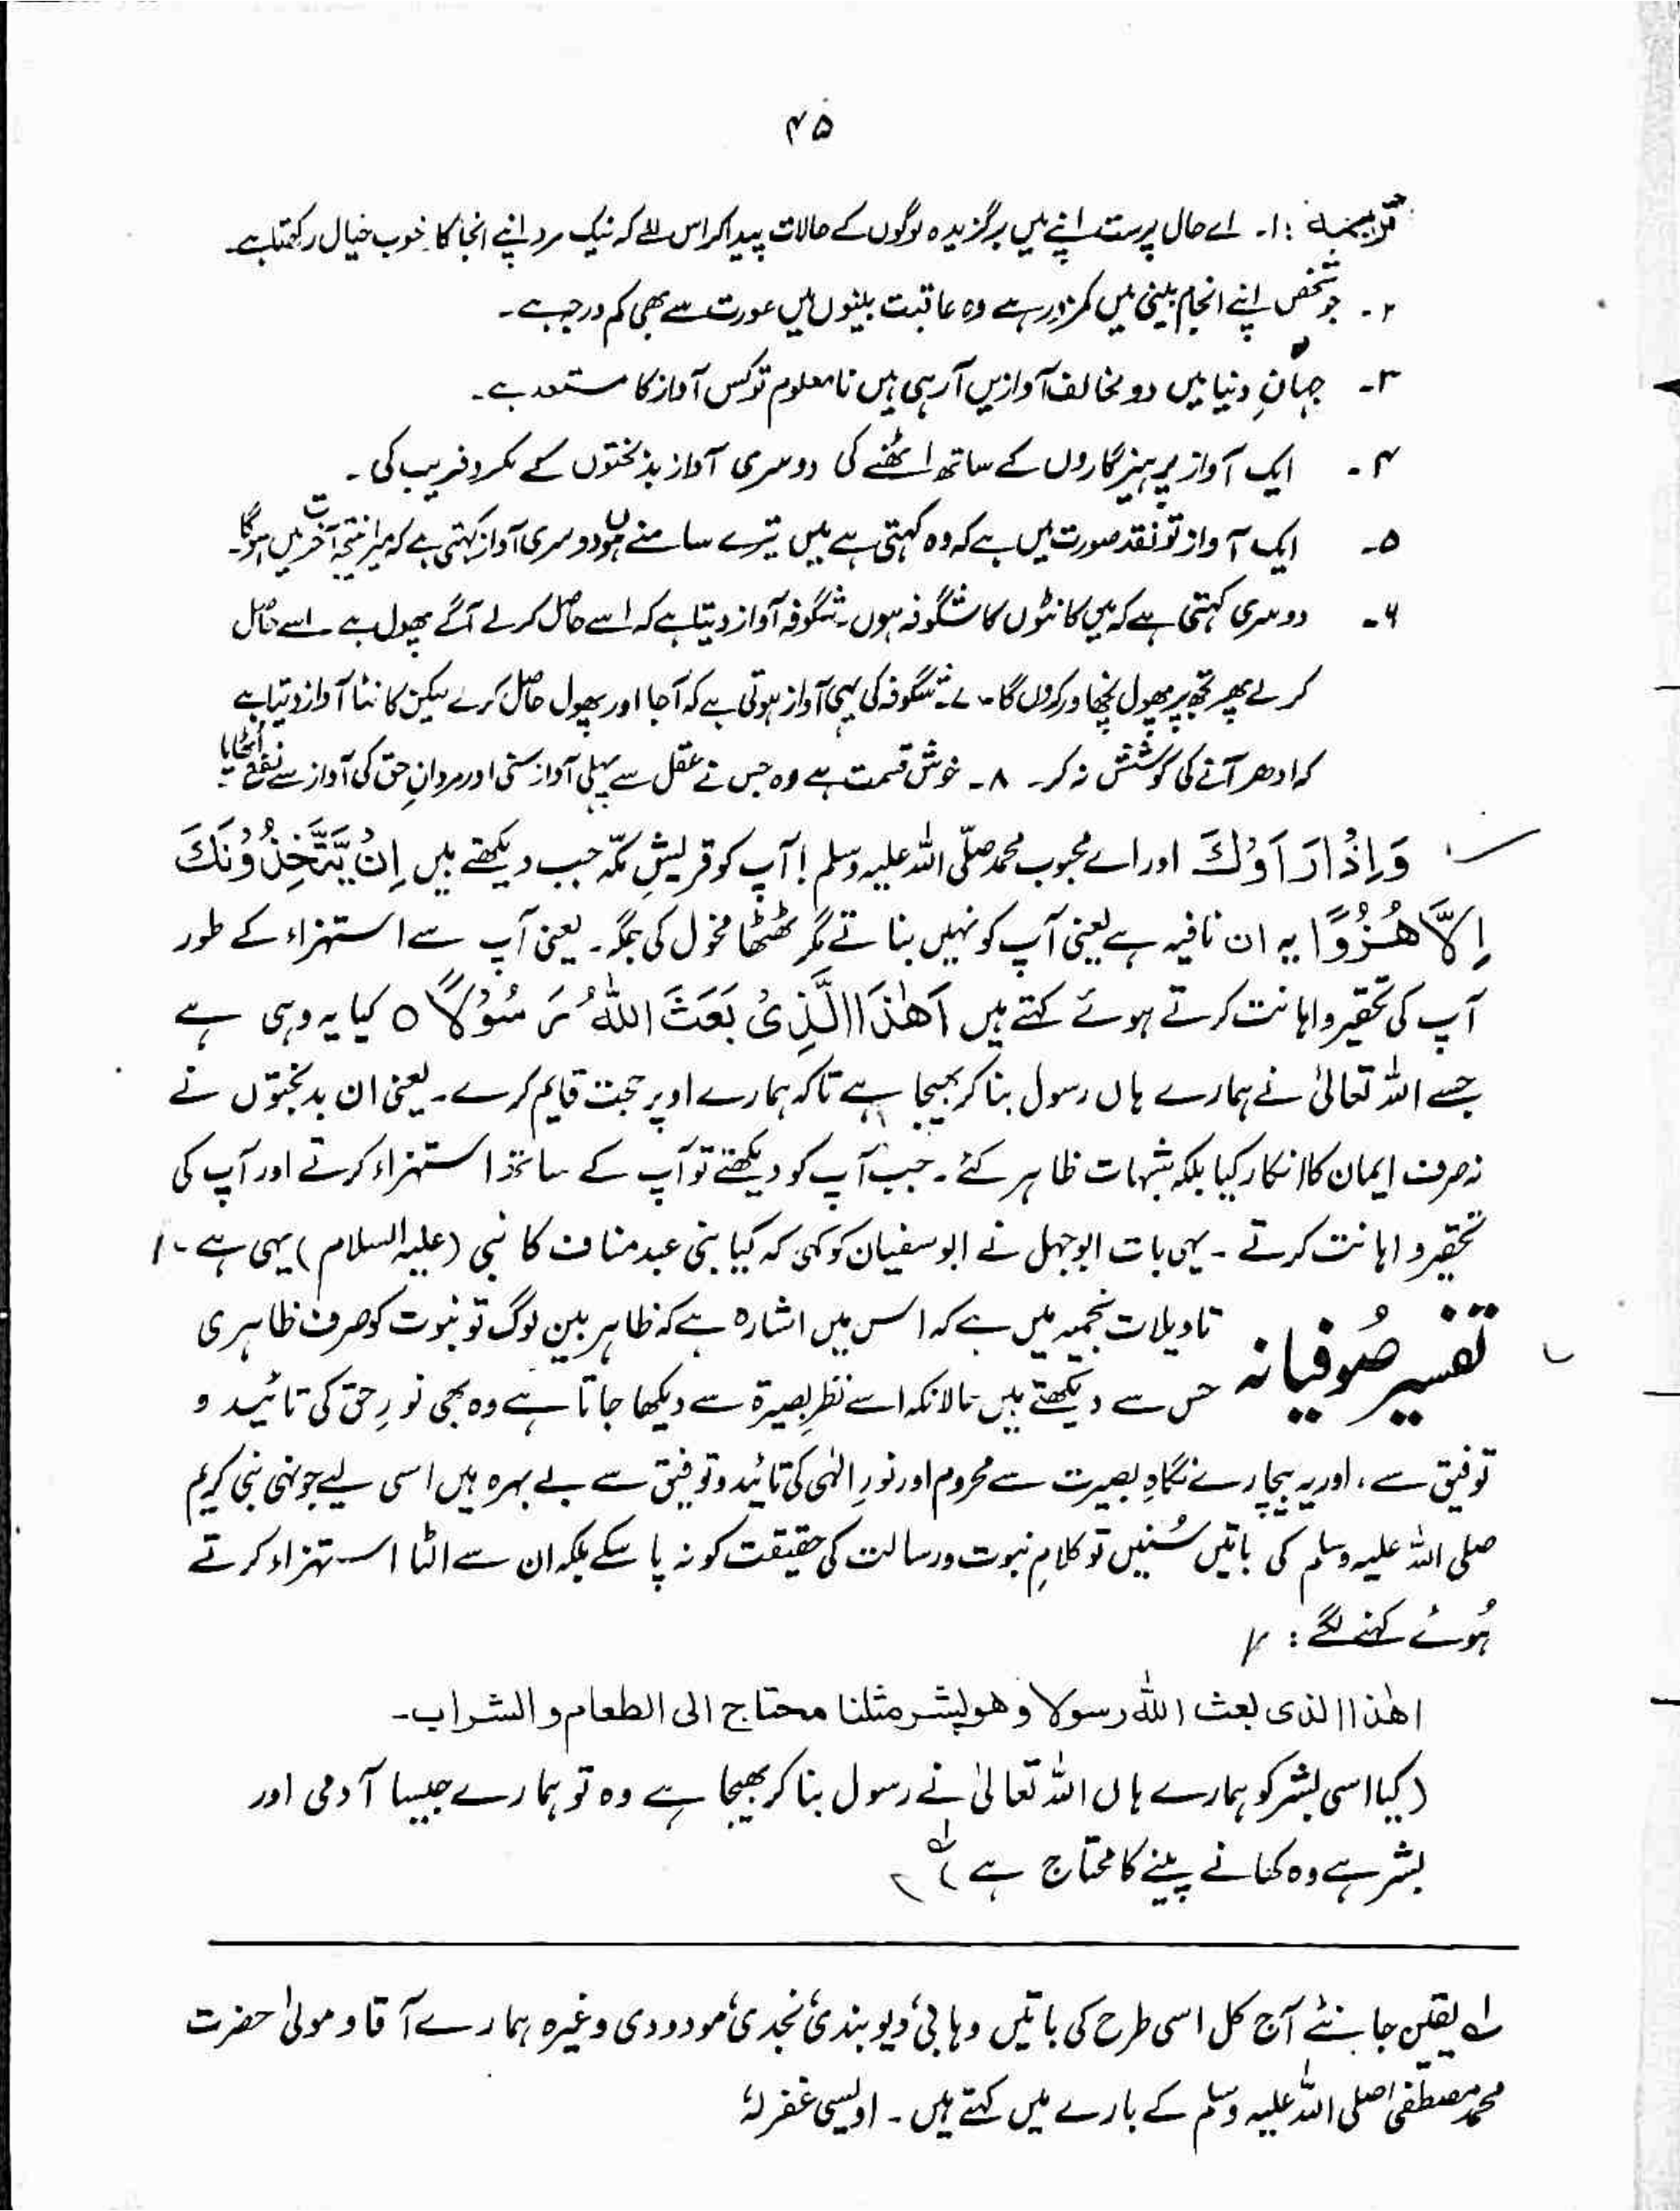 ۴۵
ترجمہ : ۱۔ اے حال پرست اپنے میں برگزیدہ لوگوں کے حالات پیدا کر اس لئے کہ نیک مرد اپنے انجا کا خوب خیال رکھتا ہے۔
۲۔ جو شخص اپنے انجام بینی میں کمزور ہے وہ عاقبت بینوں میں عورت سے بھی کم درجہ ہے۔
۳۔ جہانِ دنیا میں دو مخالف آوازیں آرہی ہیں نامعلوم تو کس آواز کا مستعد ہے۔
۴۔ ایک آواز پرہیزگاروں کے ساتھ اٹھنے کی دوسری آواز بدبختوں کے مکر و فریب کی۔
۵۔ ایک آواز تو نقد صورت میں ہے کہ وہ کہتی ہے میں تیرے سامنے ہوں دوسری آواز کہتی ہے کہ میرا نتیجہ آخرت میں ہوگا۔
۶۔ دوسری کہتی ہے کہ میں کانٹوں کا شگوفہ ہوں۔ شگوفہ آواز دیتا ہے کہ اسے حاصل کرلے آگے پھول ہے ۔ اسے حاصل
کرلے پھر تجھ پر پھول نچھاور کروں گا۔ ۷۔ شگوفہ کی یہی آواز ہوتی ہے کہ آجا اور پھول حاصل کرے لیکن کانٹا آواز دیتا ہے
کہ ادھر آنے کی کوشش نہ کر۔ ۸۔ خوش قسمت ہے وہ جس نے عقل سے پہلی آواز سنی اور مردانِ حق کی آواز سے نفع اُٹھایا۔
وَاِذَا رَاَوْكَ اور اے محبوب محمد صلّی اللہ علیہ وسلم ! آپ کو قریشِ مکّہ جب دیکھتے ہیں اِنْ يَّتَّخِذُوْنَكَ
اِلَّا هُزُوًا یہ ان نافیہ ہے یعنی آپ کو نہیں بناتے مگر ٹھٹھا مخول کی جگہ۔ یعنی آپ سے استہزاء کے طور
آپ کی تحقیر و اہانت کرتے ہوئے کہتے ہیں اَهٰذَا الَّذِىْ بَعَثَ اللّٰهُ رَسُوْلًا ○ کیا یہ وہی ہے
جسے اللہ تعالیٰ نے ہمارے ہاں رسول بنا کر بھیجا ہے تاکہ ہمارے اوپر حجت قایم کرے۔ یعنی ان بدبختوں نے
نہ صرف ایمان کا انکار کیا بلکہ شبہات ظاہر کئے۔ جب آپ کو دیکھتے تو آپ کے ساتھ استہزاء کرتے اور آپ کی
تحقیر و اہانت کرتے ۔ یہی بات ابو جہل نے ابو سفیان کو کہی کہ کیا بنی عبد مناف کا نبی (علیہ السلام) یہی ہے ۔
تفسیر صُوفیانہ تاویلات نجمیہ میں ہے کہ اس میں اشارہ ہے کہ ظاہر بین لوگ تو نبوت کو صرف ظاہری
حس سے دیکھتے ہیں حالانکہ اسے نظرِ بصیرۃ سے دیکھا جاتا ہے وہ بھی نورِ حق کی تائید و
توفیق سے ، اور یہ بیچارے نگاہِ بصیرت سے محروم اور نورِ الٰہی کی تائید و توفیق سے بے بہرہ ہیں اسی لیے جونہی نبی کریم
صلی اللہ علیہ وسلم کی باتیں سُنیں تو کلامِ نبوت و رسالت کی حقیقت کو نہ پا سکے بلکہ ان سے الٹا استہزاء کرتے
ہُوئے کہنے لگے :
اھٰذا الذی بعث اللہ رسولا وھو بشر مثلنا محتاج الی الطعام والشراب۔
(کیا اسی بشر کو ہمارے ہاں اللہ تعالیٰ نے رسول بنا کر بھیجا ہے وہ تو ہمارے جیسا آدمی اور
بشر ہے وہ کھانے پینے کا محتاج ہے) لہ
لہ یقین جانئے آج کل اسی طرح کی باتیں وہابی، دیوبندی، نجدی، مودودی وغیرہ ہمارے آقا و مولیٰ حضرت
محمد مصطفیٰ صلی اللہ علیہ وسلم کے بارے میں کہتے ہیں ۔ اویسی غفرلہٗ